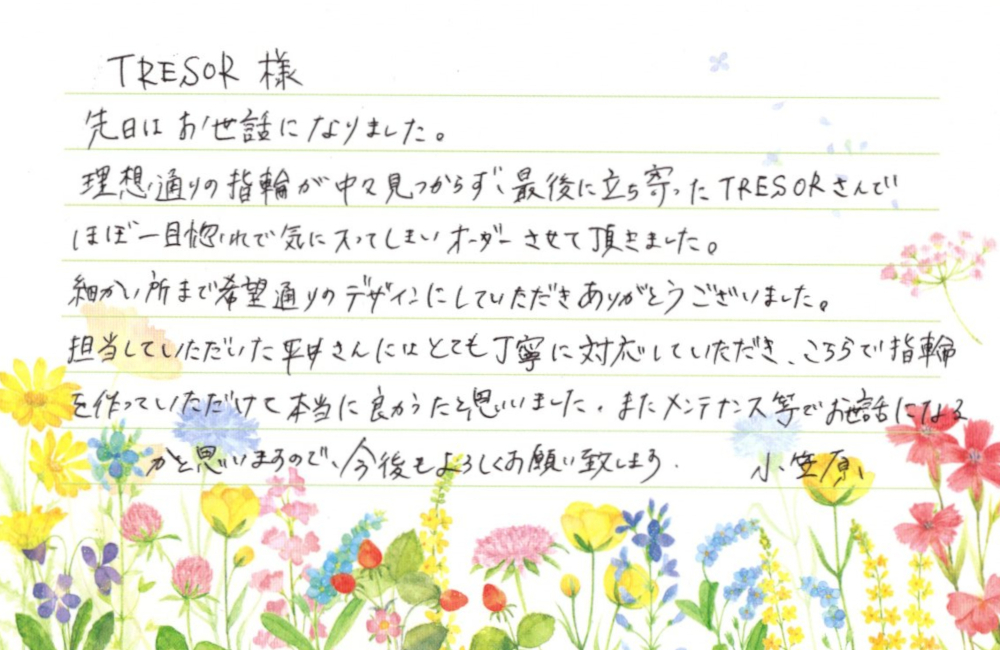 TRESOR 様
先日はお世話になりました。
理想通りの指輪が中々見つからず、最後に立ち寄ったTRESORさんで
ほぼ一目惚れで気に入ってしまいオーダーさせて頂きました。
細かい所まで希望通りのデザインにしていただきありがとうございました。
担当していただいた平井さんにはとても丁寧に対応していただき、こちらで指輪
を作っていただけて本当に良かったと思いました。またメンテナンス等でお世話になる
かと思いますので、今後もよろしくお願い致します。 小笠原